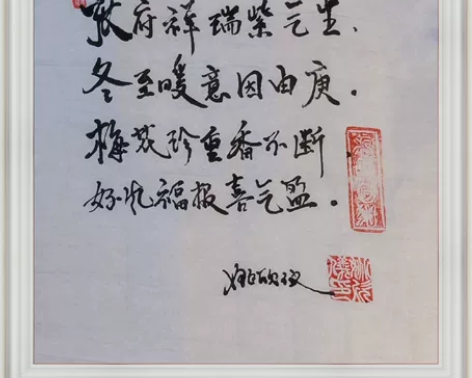 张府祥瑞紫气生.
冬至暖意因由庚.
梅花珍重香不断
好兆福报喜气盈.